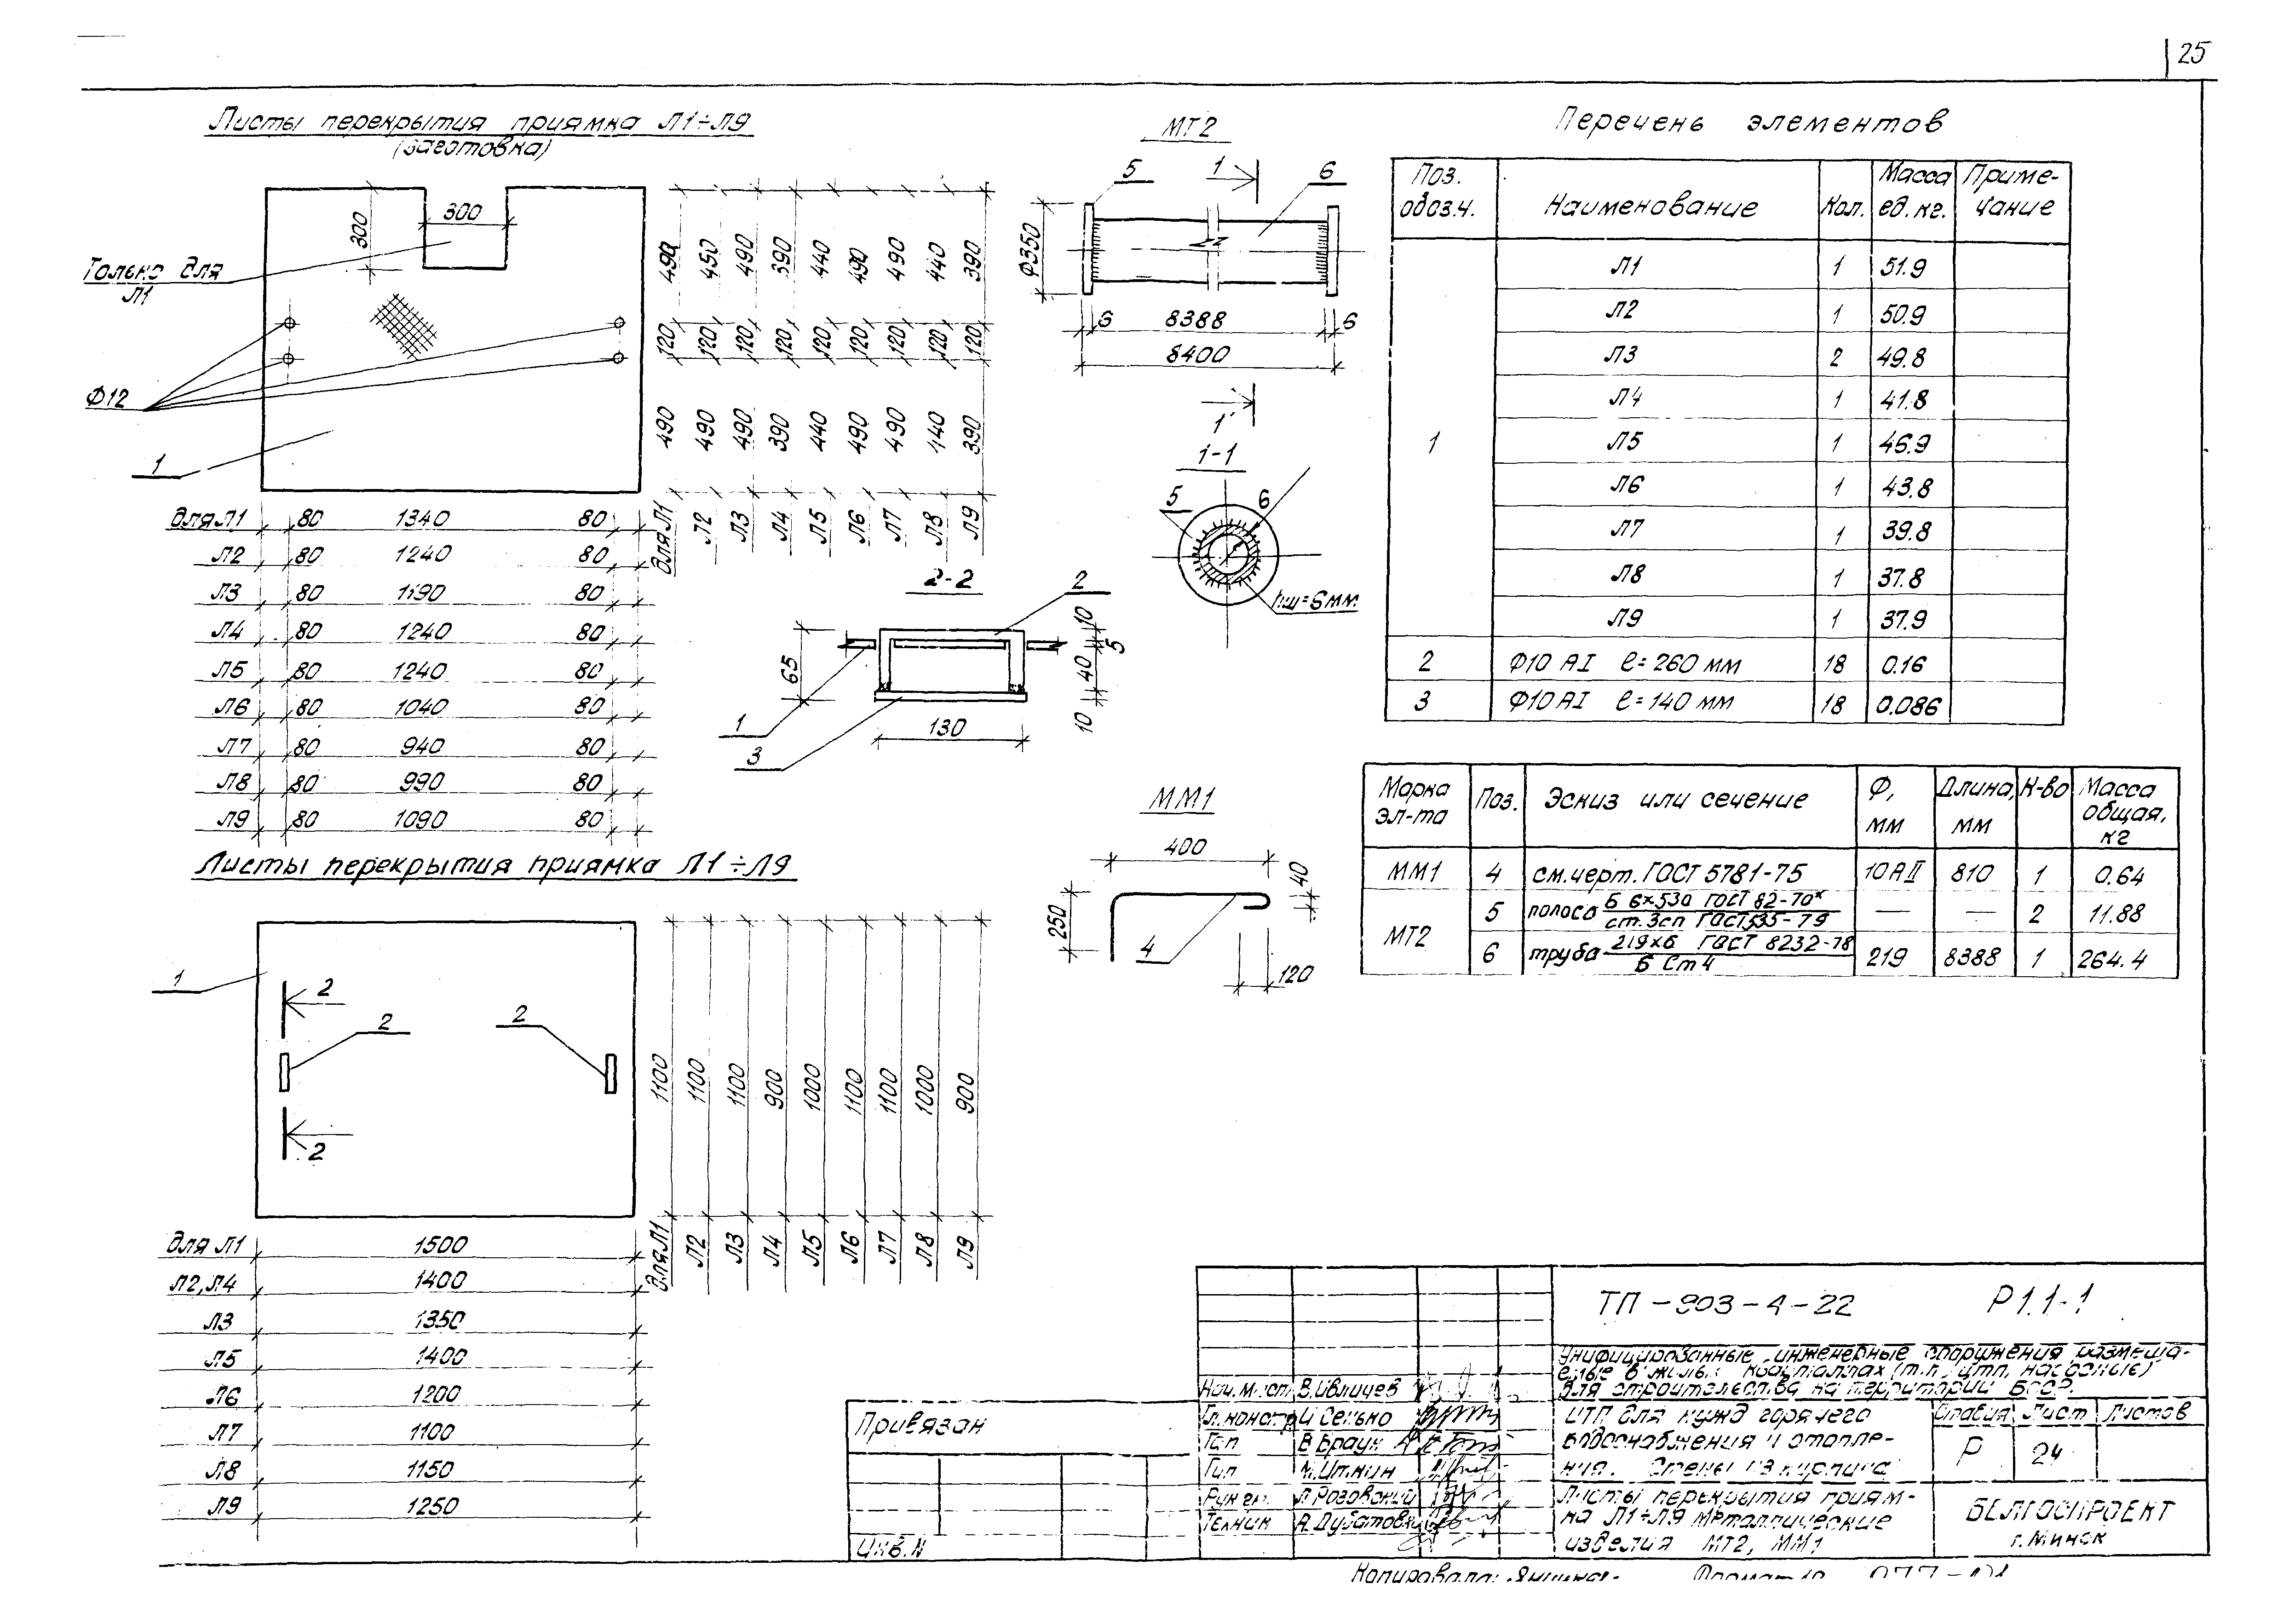 25
Листы перекрытия приямка Л1÷Л9
(заготовка)
300
300
Только для
Л1
Ф12
1
490 450 490 390 440 490 490 440 390
120 120 120 120 120 120 120 120 120
490 490 490 390 440 490 490 440 390
для Л1 Л2 Л3 Л4 Л5 Л6 Л7 Л8 Л9
для Л1 80 1340 80
Л2 80 1240 80
Л3 80 1190 80
Л4 80 1240 80
Л5 80 1240 80
Л6 80 1040 80
Л7 80 940 80
Л8 80 990 80
Л9 80 1090 80
2-2
2
65
10
5
40
10
1
3
130
Листы перекрытия приямка Л1÷Л9
1
2
2
2
2
1100 1100 1100 900 1000 1100 1100 1000 900
для Л1 Л2 Л3 Л4 Л5 Л6 Л7 Л8 Л9
для Л1 1500
Л2, Л4 1400
Л3 1350
Л5 1400
Л6 1200
Л7 1100
Л8 1150
Л9 1250
МТ2
5
1
6
Ф350
6 8388 6
8400
1
1-1
5
6
hш=6мм
ММ1
400
40
250
4
120
Перечень элементов
Поз. обозн. Наименование Кол. Масса ед. кг. Приме-чание
1
Л1 1 51.9
Л2 1 50.9
Л3 2 49.8
Л4 1 41.8
Л5 1 46.9
Л6 1 43.8
Л7 1 39.8
Л8 1 37.8
Л9 1 37.9
2 Ф10 АI ℓ=260 мм 18 0.16
3 Ф10 АI ℓ=140 мм 18 0.086
Марка эл-та Поз. Эскиз или сечение Ф, мм Длина, мм К-во Масса общая, кг
ММ1 4 см.черт. ГОСТ 5781-75 10 АII 810 1 0.64
МТ2
5 полоса Б 6х530 ГОСТ 82-70* / ст.3сп ГОСТ 535-79 — — 2 11.88
6 труба 219х6 ГОСТ 8232-78 / Б Ст 4 219 8388 1 264.4
ТП-903-4-22 Р1.1-1
Унифицированные инженерные сооружения размеща-
емые в жилых кварталах (т.п., цтп, насосные)
для строительства на территории БССР.
ИТП для нужд горячего
водоснабжения и отопле-
ния. Стены из кирпича
Стадия Лист Листов
Р 24
Листы перекрытия приям-
ка Л1÷Л9 Металлические
изделия МТ2, ММ1
БЕЛГОСПРОЕКТ
г. Минск
Нач. маст.
Гл. констр. Сенько
Гап В Браун
Гип М. Иткин
Рук гр. Л Розовский
Техник
Привязан
Инв.N
Копировала: